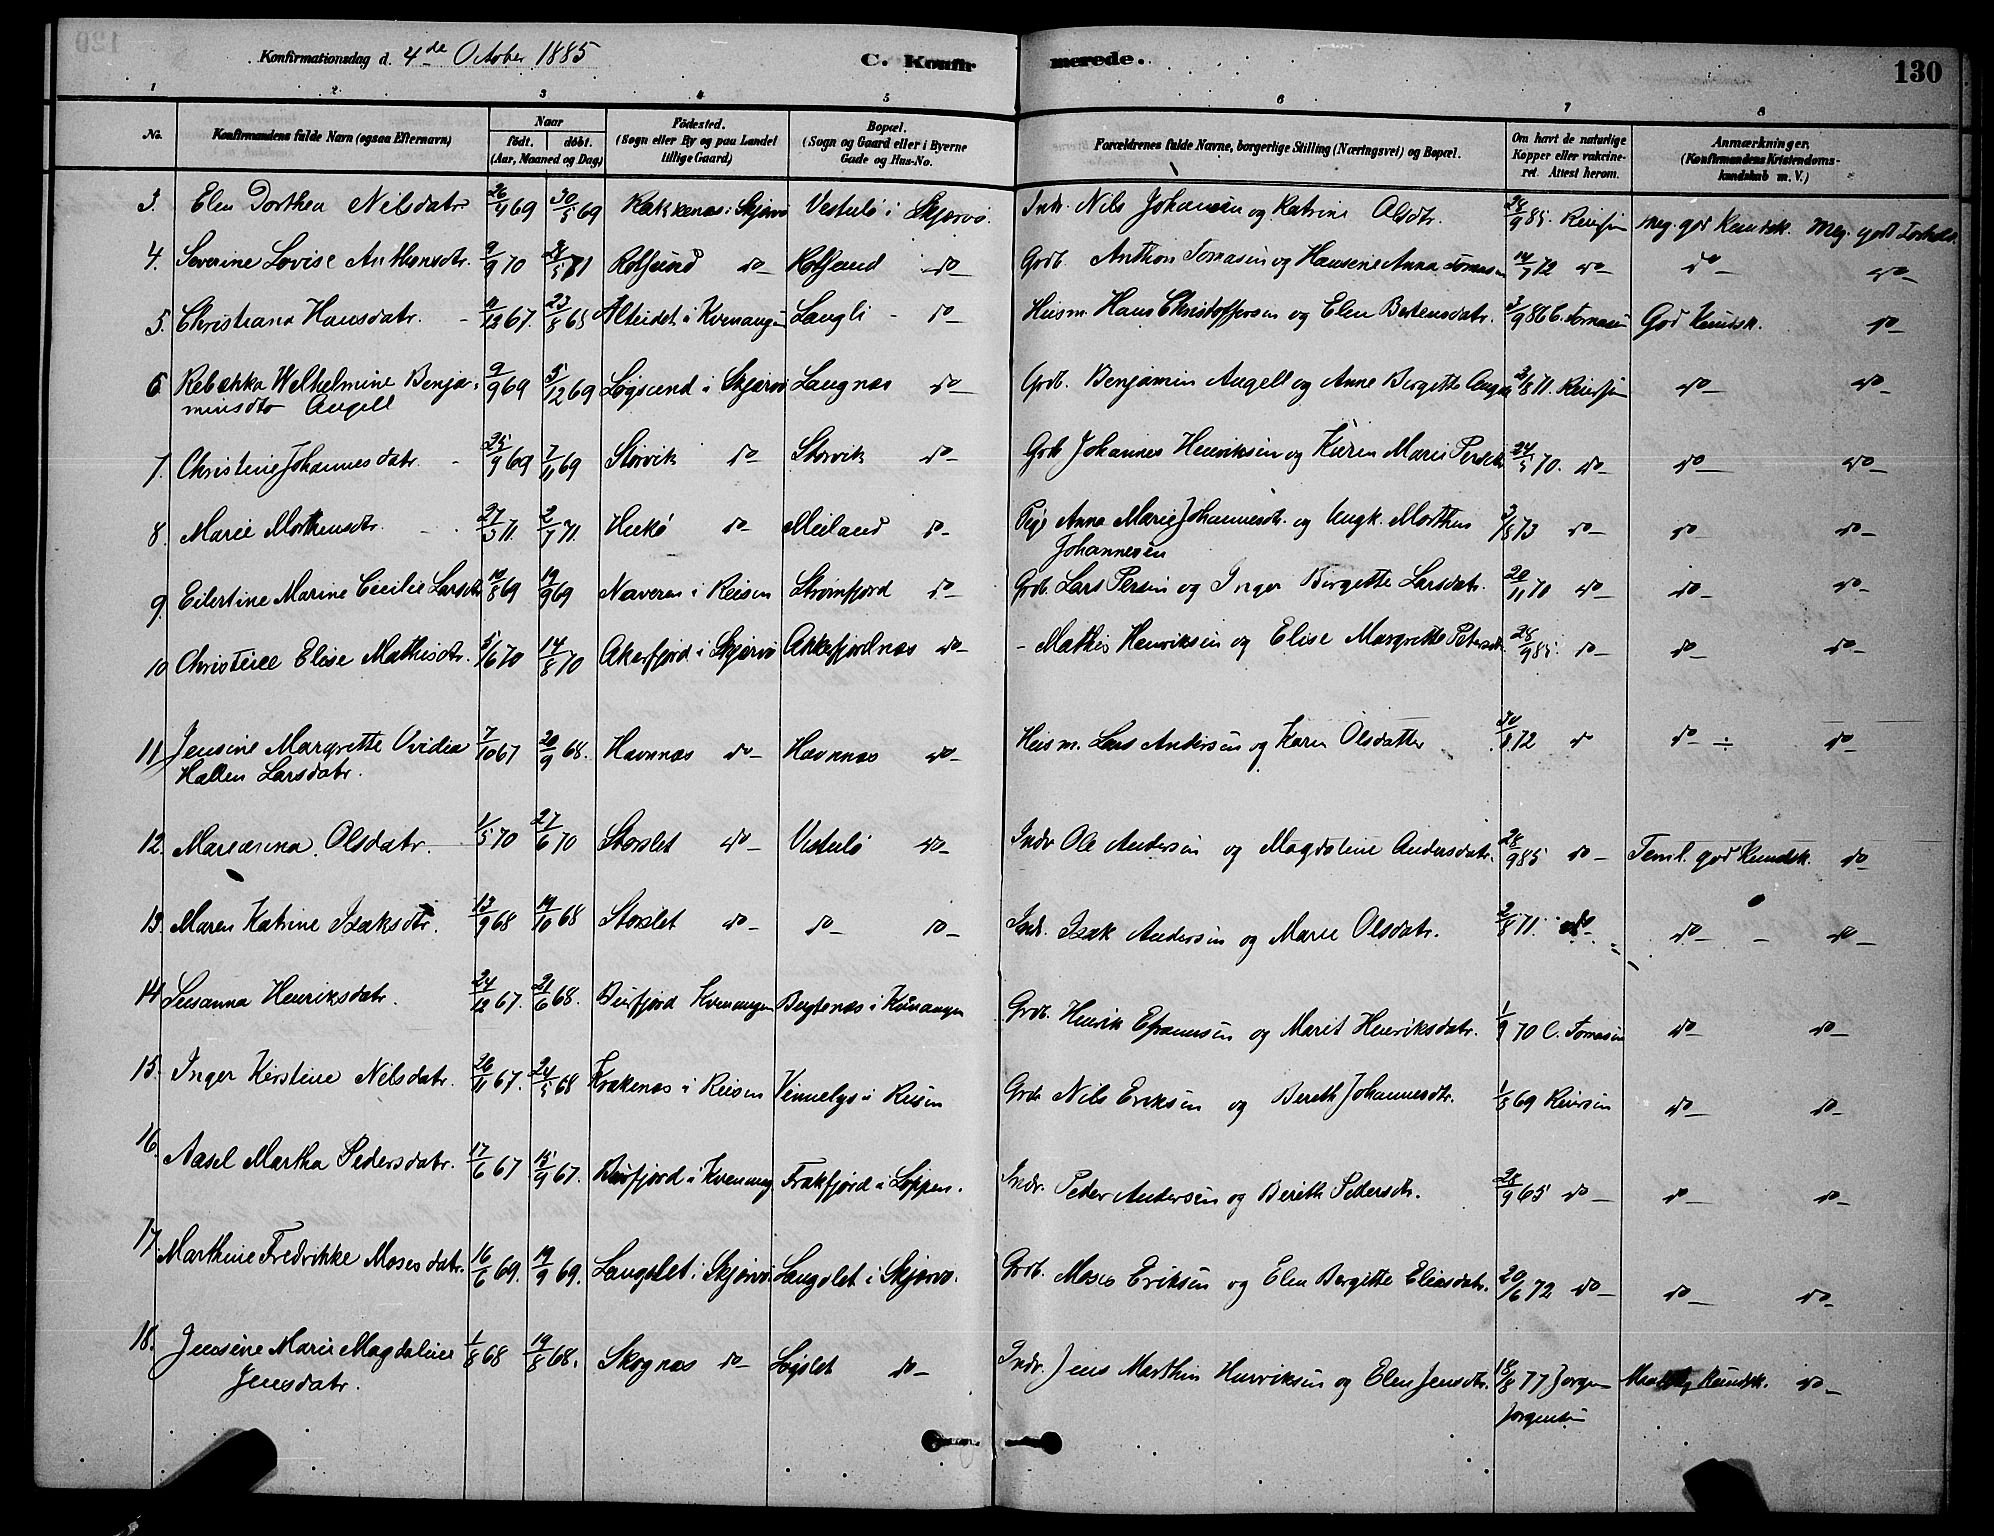 Konfirmationsdag d. 4de October 1885 C. Konfir merede. 130
1 2 3 4 5 6 7 8
No. Konfirmandens fulde Navn (ogsaa Efternavn) Naar født. døbt. (Aar, Maaned og Dag) Fødested. (Sogn eller By og paa Landet tillige Gaard) Bopæl. (Sogn og Gaard eller i Byerne Gade og Hus-No. Forældrenes fulde Navne, borgerlige Stilling (Næringsvei) og Bopæl. Om havt de naturlige Kopper eller vakcineret. Attest herom. Anmærkninger. (Konfirmandens Kristendomskundskab m. V.)
3. Elen Dorthea Nilsdatr 26/4 69 30/5 69 Kækkenæs i Skjærvø Vestulø i Skjervø. Indr. Nils Johansen og Katrine Olsdtr. 28/9 85. Reiersen Meg. god Kundsk. Meg. godt Forhold
4. Severine Lovise Anthonsdtr. 9/9 70 21/5 71 Rotsund do Rotsund do Grdb. Anthon Tomasen og Hansene Anna Tomasen 14/7 72 do do do
5. Christiana Hansdatr. 11/12 67. 23/8 68 Alteidet i Kvenangen Laugli do Husm. Hans Christoffersen og Elen Bertensdatr. 3/9 86 C. Tomasen God Kundsk. do
6 Rebækka Welhelmine Benja-
minsdtr Angell 9/9 69 5/12 69 Løgsund i Skjærvø Langnæs do Grdb. Benjamin Angell og Anne Birgette Angell 3/8 71. Reiersen do do
7. Christine Johannesdatr. 25/9 69 7/11 69 Storvik do Storvik do Grb Johannes Henriksen og Karen Marie Persdtr 24/5 70. do do do
8. Marie Mortensdtr. 27/3 71. 2/7 71. Hukø do Meiland do Pige Anna Marie Johannesdtr. og Ungk. Morthen
Johannesen 3/8 73 do do do
9. Eilertine Marine Cecilie Larsdtr 10/8 69 19/9 69 Naveren i Reisen Strømfjord do Grdb. Lars Persen og Inger Birgette Larsdatr. 20/11 70 do do do
10 Christine Elise Mathisdtr. 5/6 70 14/8 70 Akerfjord i Skjærvø Akkefjordnæs do - Mathis Henriksen og Elise Margrette Petersdtr. 28/9 85. do do do
11 Jensine Margrette Ovidia
Hallen Larsdatr. 7/10 67 20/9 68. Havnnæs do Havnnæs do Husm. Lars Andersen og Karen Olsdatter 30/8 72 do do ÷ do
12. Mareanna Olsdatr. 1/5 70 27/6 70 Storslet do Vestulø do Indr Ole Andersen og Magdalene Andersdatr. 28/9 85 do Teml. god Kundsk. do
13. Maren Katrine Isaksdtr. 13/9 68 19/10 68 Storslet do do do Indr. Isak Andersen og Marie Olsdatr. 2/8 71. do do do
14 Susanna Henriksdatr. 24/12 67. 21/6 68. Burfjord Kvenangen Bugtenæs i Kvenangen Grdb. Henrik Efraimsen og Marit Henriksdatr. 1/9 70 C. Tomasen do do
15. Inger Kirstine Nilsdatr. 26/11 67. 24/5 68 Krakenæs i Reisen Vinnelys i Reisen Grdr Nils Eriksen og Bereth Johannesdtr. 1/8 69 Reiersen do do
16. Aasel Martha Pedersdatr. 17/6 67 15/9 67. Burfjord i Kvenang Frakfjord i Loppen. Indr. Peder Andersen og Bereth Pedersdtr. 28/9 65 do do do
17. Marthine Fredrikke Mosesdatr. 16/6 69. 19/9 69. Langslet i Skjervø. Langslet i Skjervø. Grdb. Moses Eriksen og Elen Bergitte Eliasdatr. 20/6 72 do do do
18. Jensine Marie Magdaline
Jensdatr. 1/8 68 19/8 68. Skognæs do Løgslet do Indr. Jens Marthin Henriksen og Elen Jensdtr. 18/8 77 Jorgen
Jorgensen Maadelig Kundsk. do